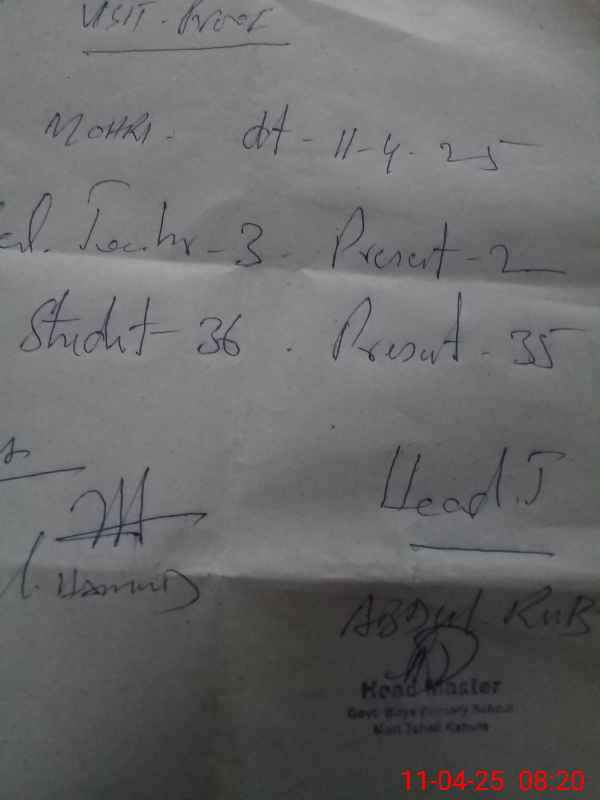 VISIT. Proof
MOHRI. dt - 11-4-25
Teacher - 3. Present - 2
Student - 36. Present - 35
Head.T
HAMMID
ABDUL RUB
Head Master
Govt. Boys Primary School
Tehsil Kahuta
11-04-25 08:20